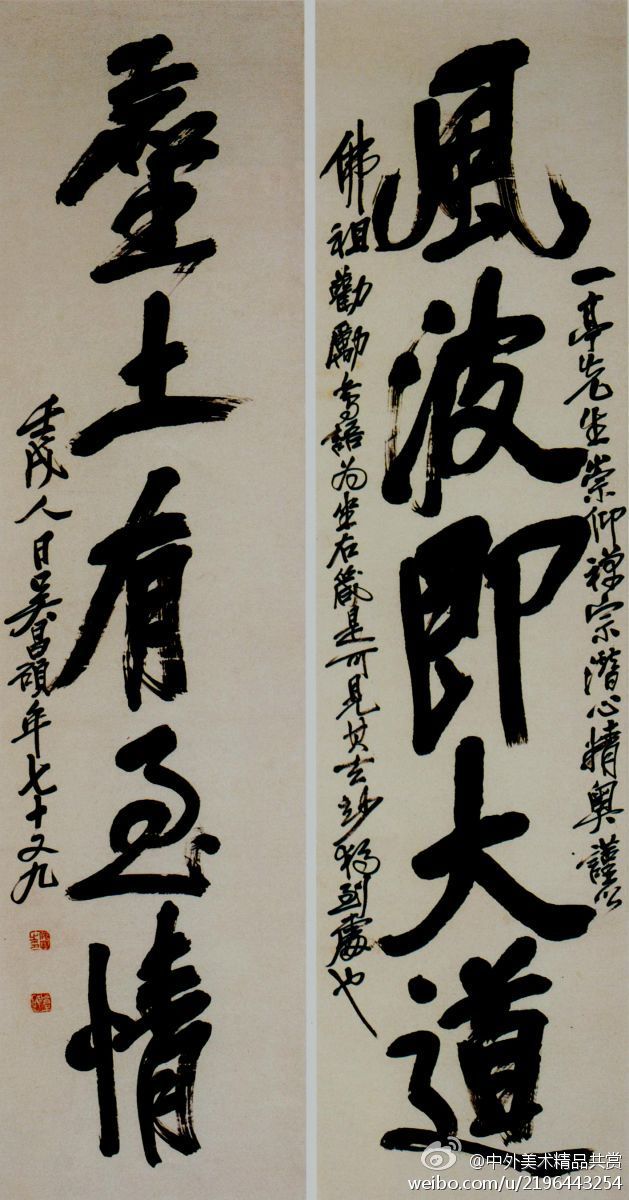 風波即大道
一亭先生崇仰禪宗潛心精奧謹以
佛祖勸勵等語為坐右箴是可見其玄妙獨到處也
塵土有至情
壬戌人日吳昌碩年七十又九
@中外美术精品共赏
weibo.com/u/2196443254